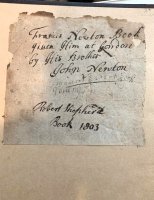 Francis Newton Book
Given Him at London
by His Brother
John Newton
Robert Shepherd
Book 1803